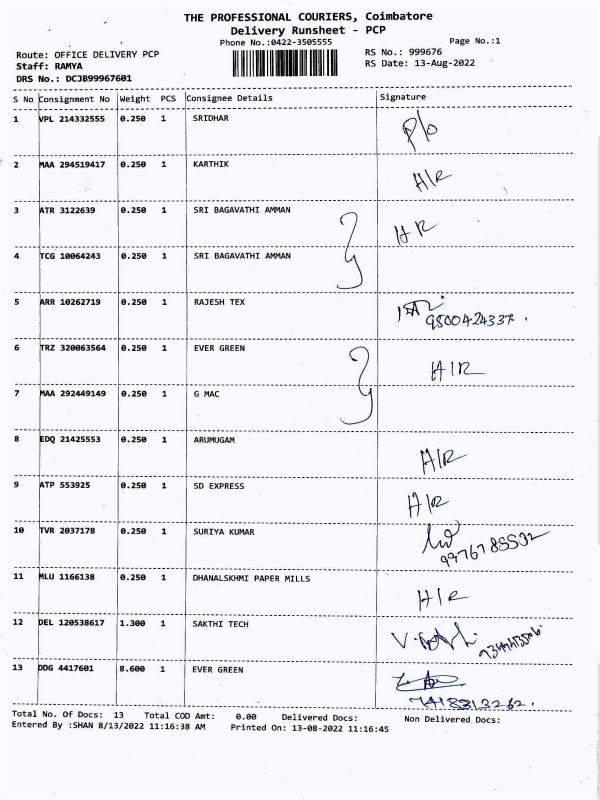 THE PROFESSIONAL COURIERS, Coimbatore
Delivery Runsheet - PCP
Phone No.:0422-3505555 Page No.:1
Route: OFFICE DELIVERY PCP RS No.: 999676
Staff: RAMYA RS Date: 13-Aug-2022
DRS No.: DCJB99967601
S No Consignment No Weight PCS Consignee Details Signature
1 VPL 214332555 0.250 1 SRIDHAR P/o
2 MAA 294519417 0.250 1 KARTHIK H/R
3 ATR 3122639 0.250 1 SRI BAGAVATHI AMMAN H R
4 TCG 10064243 0.250 1 SRI BAGAVATHI AMMAN
5 ARR 10262719 0.250 1 RAJESH TEX 9500424337.
6 TRZ 320063564 0.250 1 EVER GREEN H/R
7 MAA 292449149 0.250 1 G MAC
8 EDQ 21425553 0.250 1 ARUMUGAM H/R
9 ATP 553925 0.250 1 SD EXPRESS H/R
10 TVR 2037178 0.250 1 SURIYA KUMAR
11 MLU 1166138 0.250 1 DHANALSKHMI PAPER MILLS H/R
12 DEL 120538617 1.300 1 SAKTHI TECH
13 DDG 4417601 8.600 1 EVER GREEN 7418313262.
Total No. Of Docs: 13 Total COD Amt: 0.00 Delivered Docs: Non Delivered Docs:
Entered By :SHAN 8/13/2022 11:16:38 AM Printed On: 13-08-2022 11:16:45